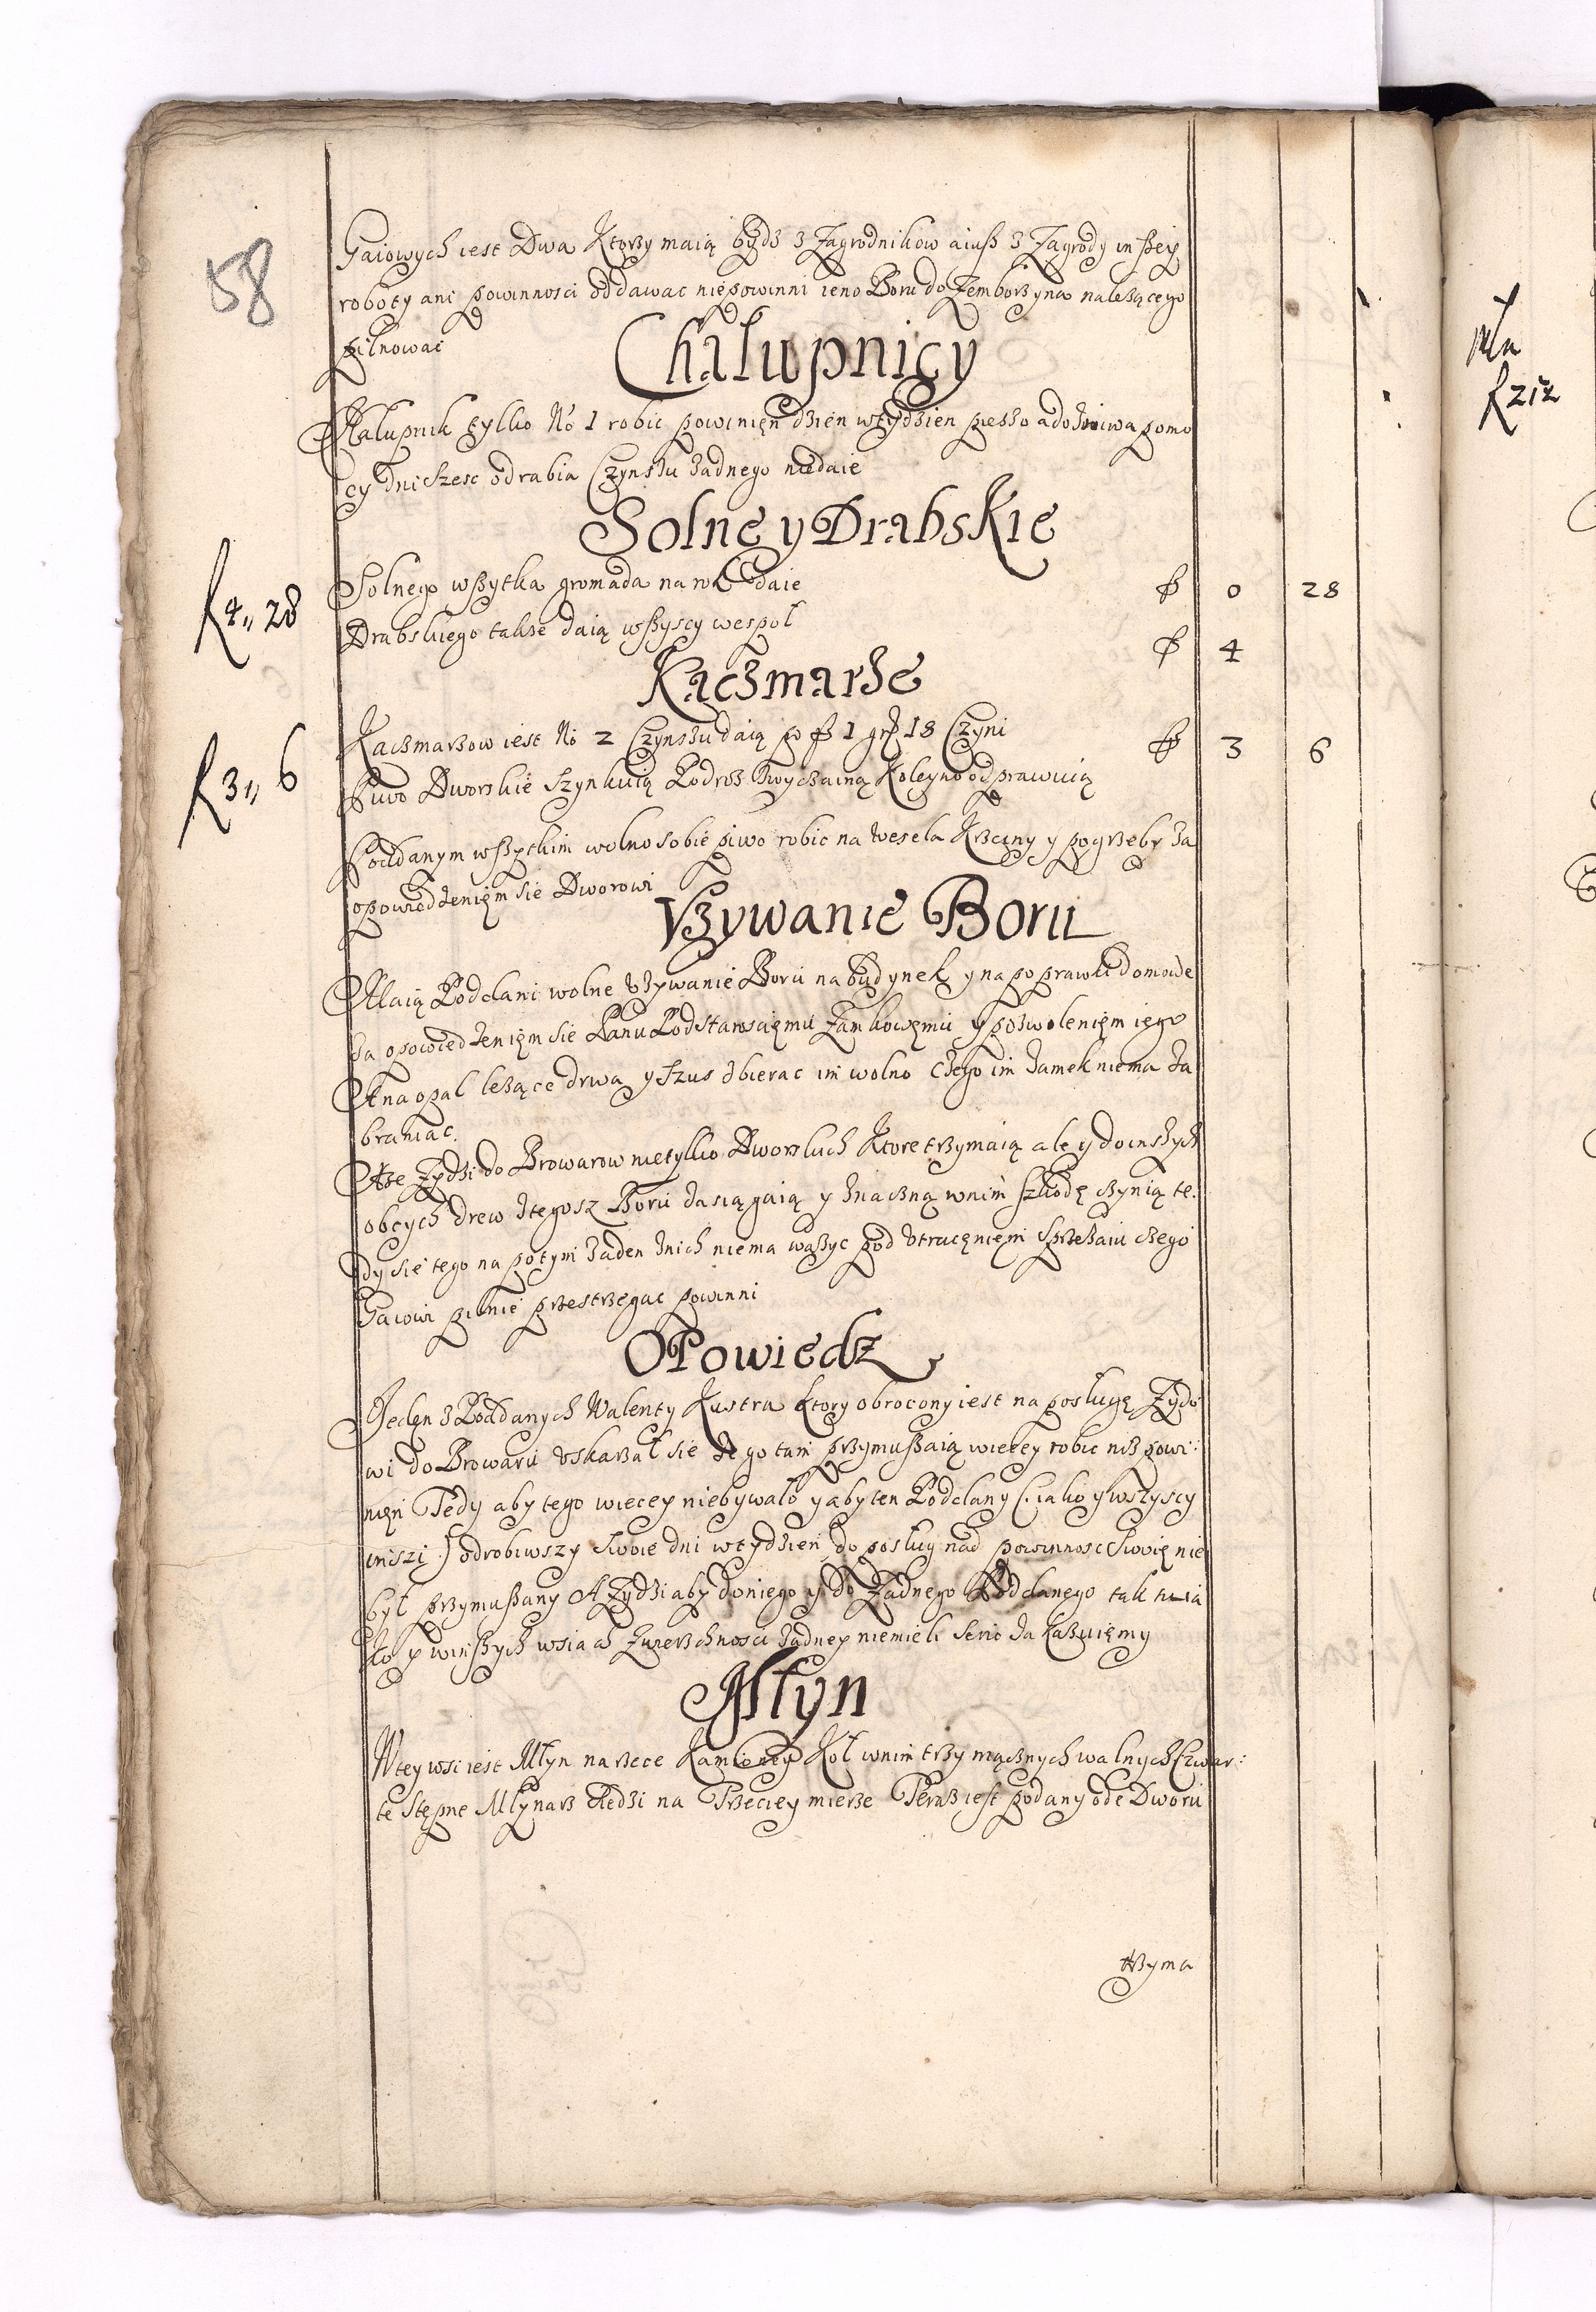 58
Gaiowych iest Dwa Ktorzy maią bydz z Zagrodnikow aiusz z Zagrody inszey
roboty ani powinnosci oddawac niepowinni ieno Boru do Zemborzyna należącego
pilnowac
Chałupnicy
Chałupnik tylko No 1 robic powinięn dzien wtydzien pieszo a do żniwa pomo
cy dni szesc odrabia Czynszu żadnego niedaie
Solne y Drabskie
Solnego wszytka gromada na rok daie
0 28
K 4,, 28
Drabskiego także daią wszyscy wespoł
4
Kaczmarze
Kaczmarzow iest No 2 Czynszu daią po fl 1 gr 18 Czyni
3 6
K 3,, 6
Piwo Dworskie szynkuią Podroz zwyczainą Koleyno odprawuią
Poddanym wszytkim wolno sobie piwo robic na wesela Krzciny y pogrzeby za
opowiedzenięm sie Dworowi
Vzywanie Boru
Maią Poddani wolne vzywanie Boru na budynek y na poprawki domowe
za opowiedzenięm sie Panu Podstarosciemu Zamkowęmu y pozwolenięm iego
A na opał leżące drwa y szus zbierac im wolno czego im Zamek niema za
braniac.
Aże Zydzi do Browarow nietylko Dworskich Ktore trzymaią ale y do inszych
obcych drew ztegosz Boru zasiągaią y znaczną wnim szkodę czynią te:
dy sie tego na potym żaden znich niema ważyc pod vtracęnięm sprzężaiu czego
Gaiowi pilnie przestrzegac powinni
Opowiedz
Jeden z Poddanych Walenty Kustra ktory obrocony iest na posługę Zydo
wi do Browaru vskarzał sie że go tam przymuszaią wiecey robic niz powi:
nięn Tedy aby tego wiecey niebywało y aby ten Poddany (: iako y wszyscy
inszi :) odrobiwszy swoie dni wtydzien do posług nad powinnosc swoię nie
był przymuszany A Zydzi aby do niego y do żadnego Poddanego tak tu ia
ko y winszych wsiach zwierzchnosci żadney niemieli serio zakazuięmy
Młyn
Wtey wsi iest Młyn na rzece Kamienęy Koł wnim trzy mącznych walnych Czwar:
te Stępne Młynarz siedzi na Trzeciey mierze Teraz iest podany ode Dworu
trzyma